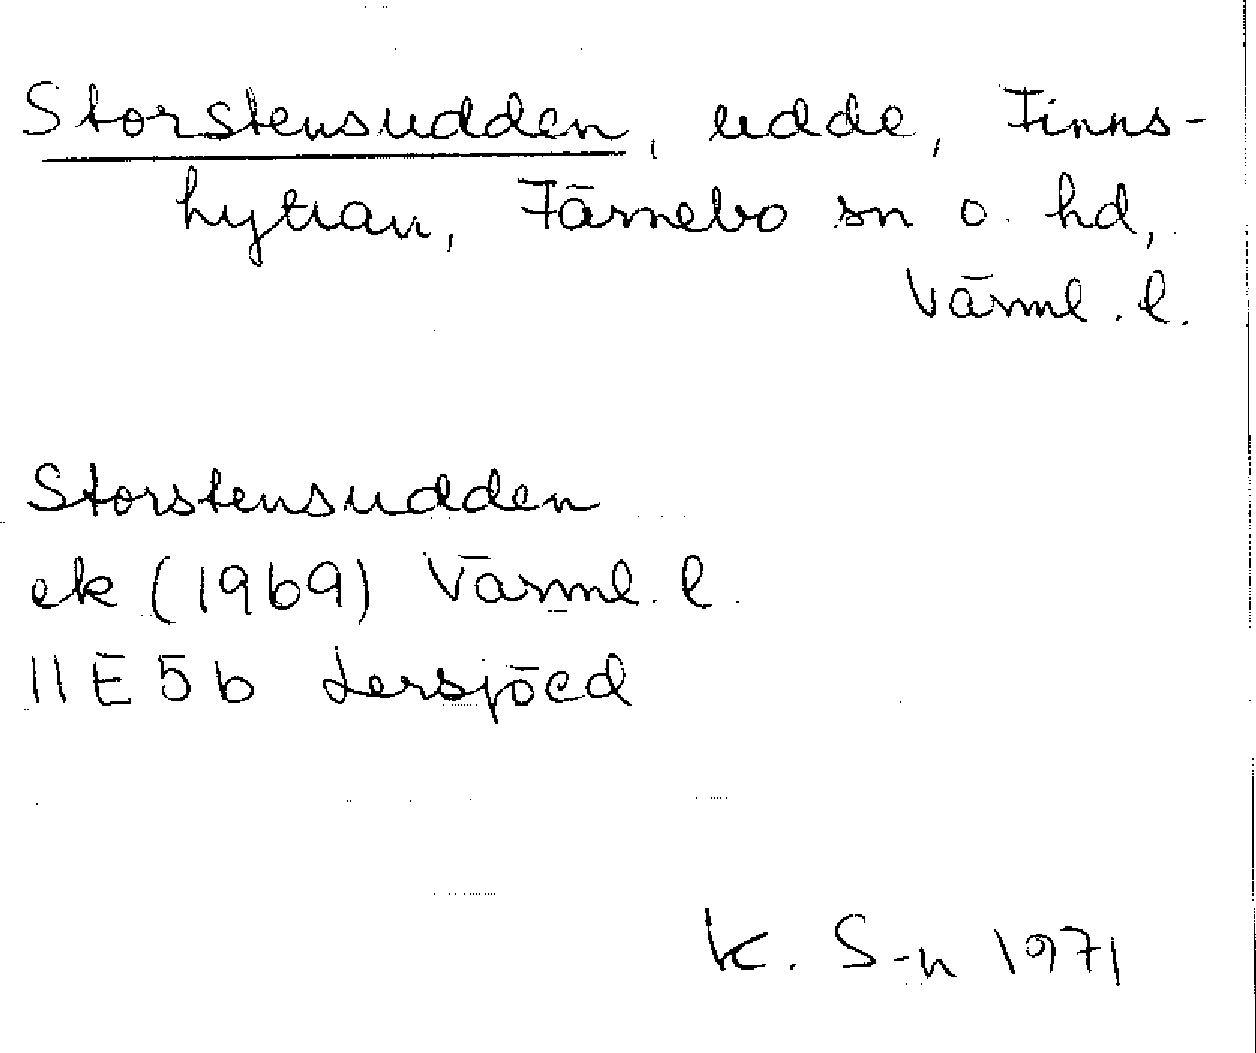 Storstensudden, udde, Finns-
hyttan, Färnebo sn o. hd,
Värml. l.
Storstensudden
ek (1969) Värml. l.
11E5b Lersjöed
K. S-n 1971